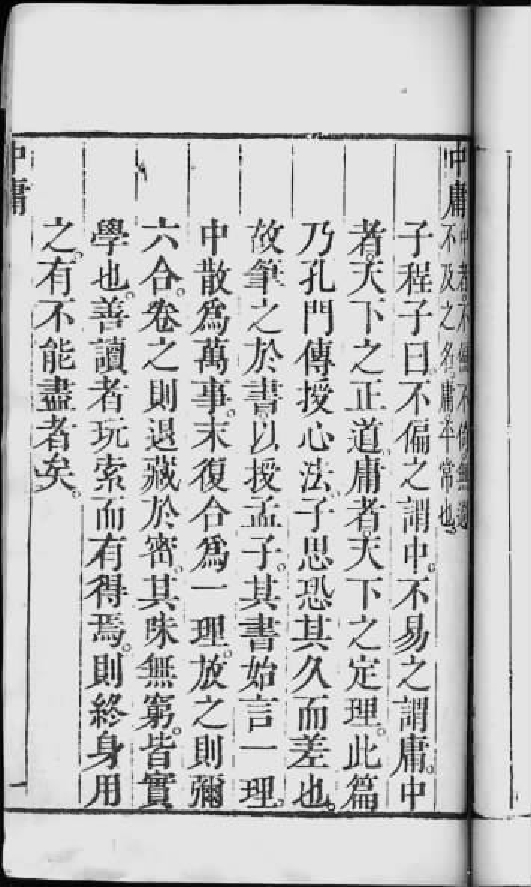 中庸中者不偏不倚無過
不及之名庸平常也
子程子曰不偏之謂中。不易之謂庸。中
者。天下之正道。庸者。天下之定理。此篇
乃孔門傳授心法。子思恐其久而差也。
故筆之於書。以授孟子。其書始言一理。
中散爲萬事。末復合爲一理。放之則彌
六合。卷之則退藏於密。其味無窮。皆實
學也。善讀者玩索而有得焉。則終身用
之。有不能盡者矣。
中庸
一